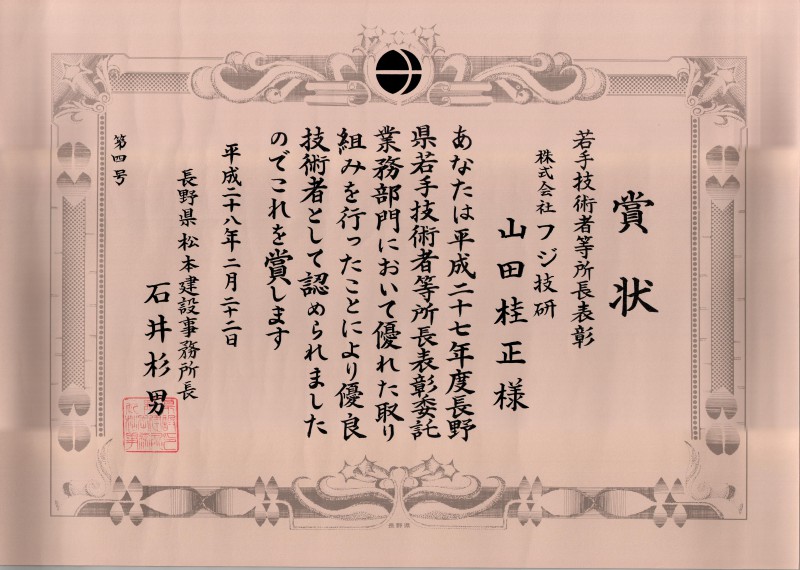 賞状
若手技術者等所長表彰
株式会社フジ技研
山田桂正様
あなたは平成二十七年度長野
県若手技術者等所長表彰委託
業務部門において優れた取り
組みを行ったことにより優良
技術者として認められました
のでこれを賞します
平成二十八年二月二十二日
長野県松本建設事務所長
石井杉男
第四号
長野県